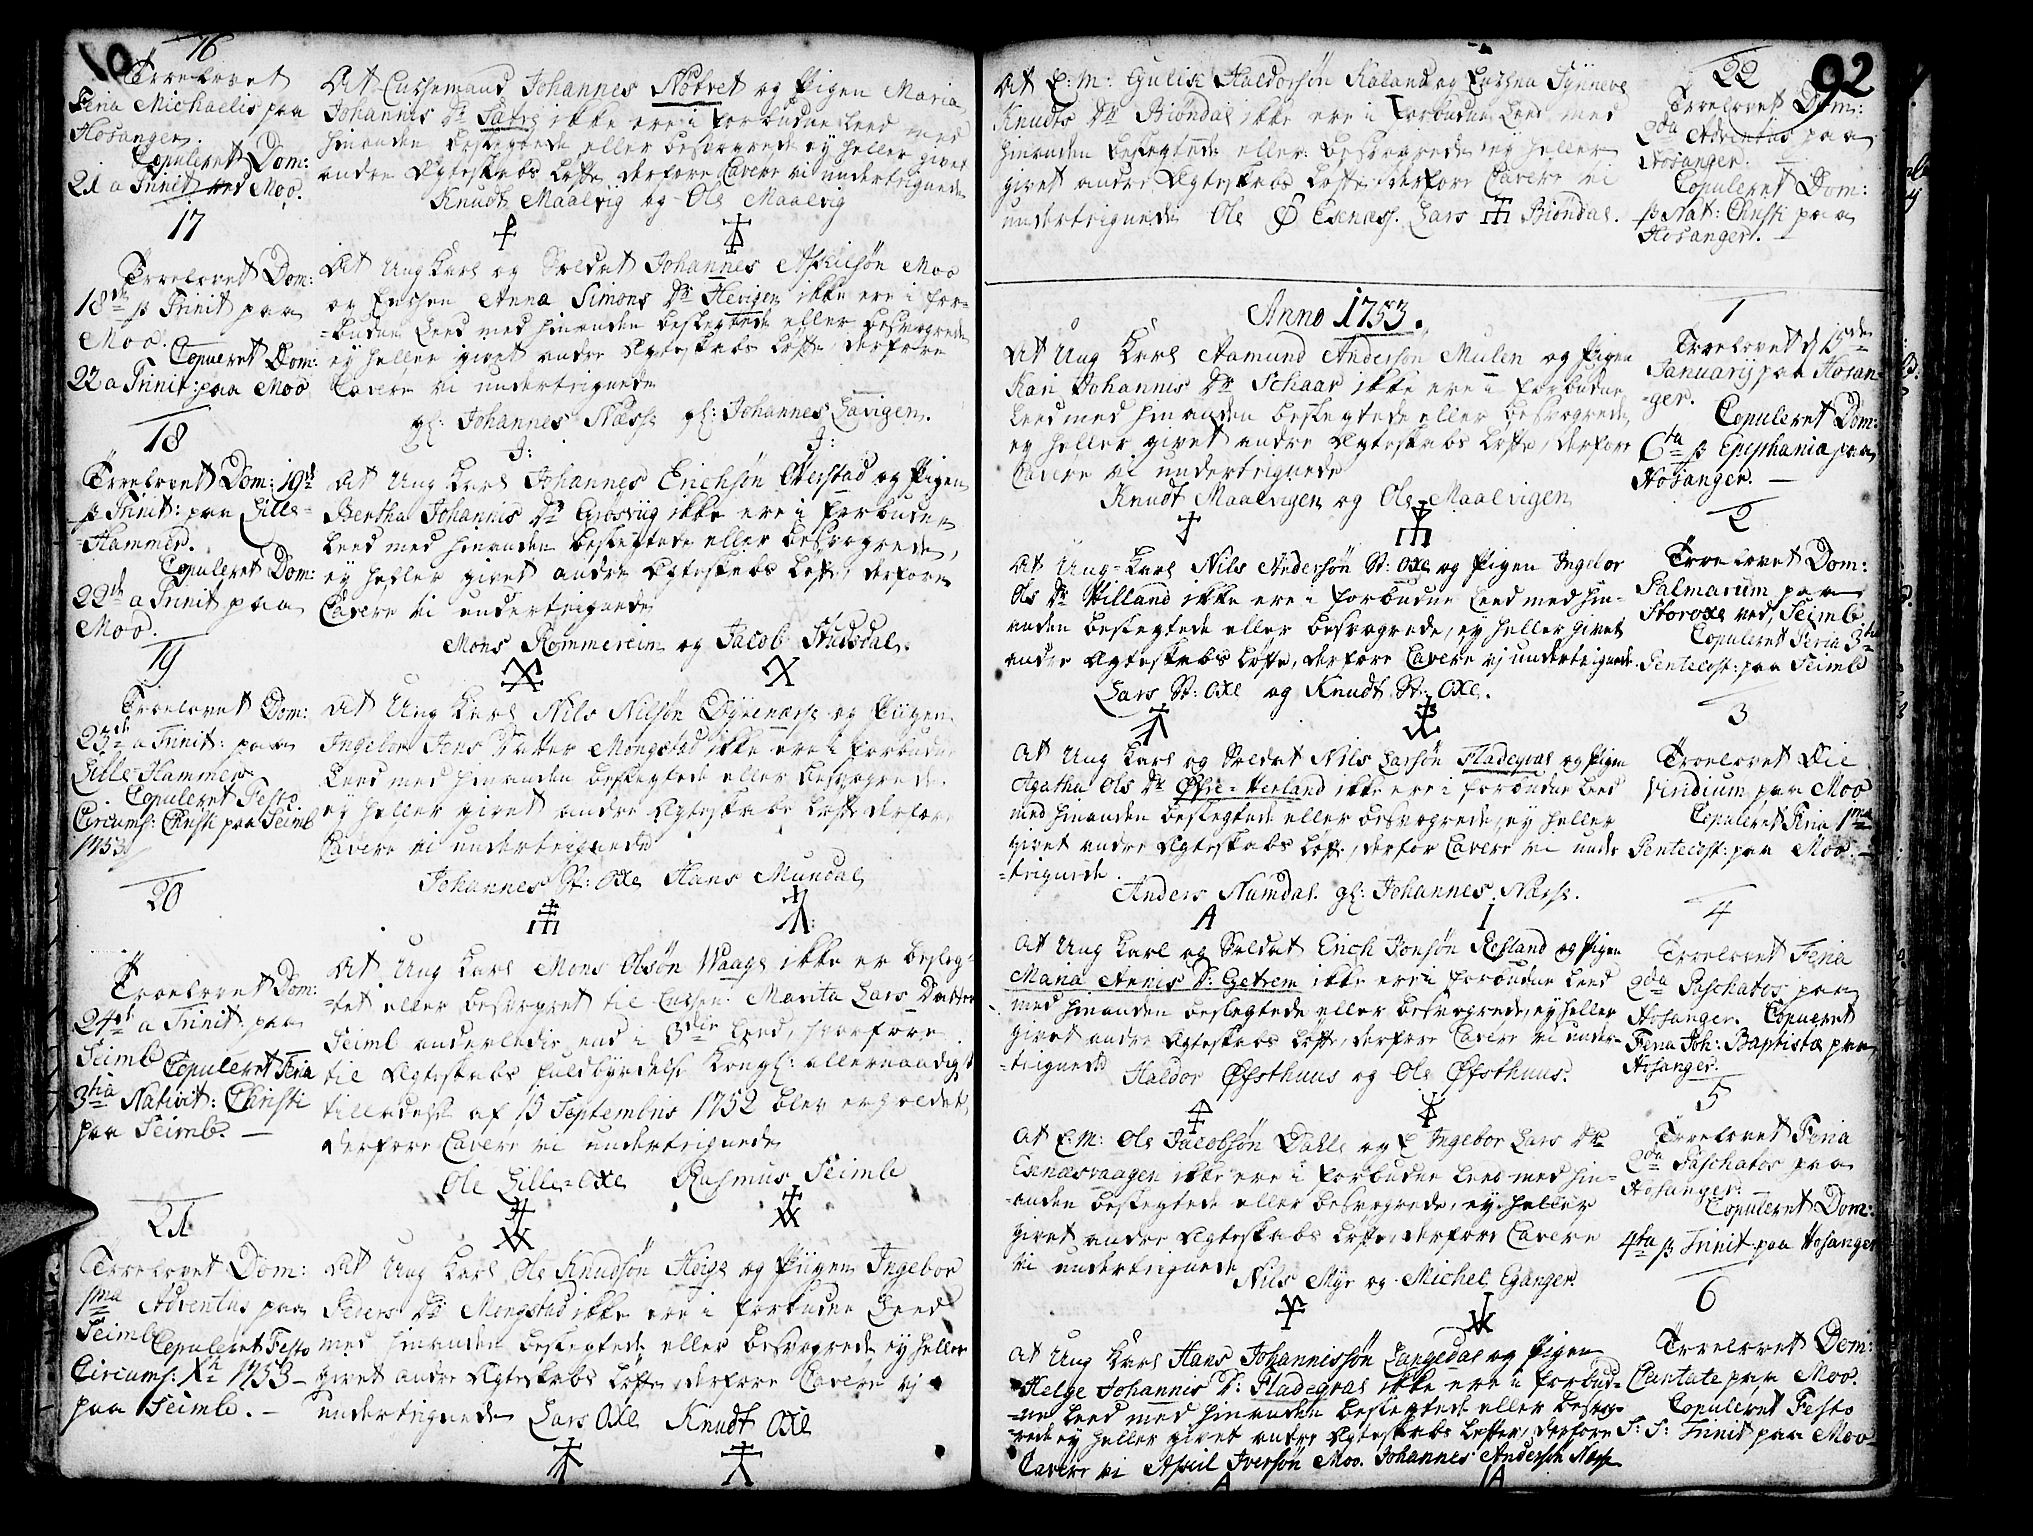 16
Troelovet
Feria Michaelis paa
Hosanger.
Copuleret Dom:
21 a Trinit ved Moo.
At Enkemand Johannes Nøtvet og Pigen Maria
Johannis Dr Sætre ikke ere i forbudne Leed med
hinanden beslegtede eller besvogrede ey heller givet
andre Ægteskabs Løfte, derfore Cavere vi undertegnede
Knudt Maalvig og Ole Maalvig
17
Troelovet Dom:
18de p Trinit paa
Moo.
Copuleret Dom:
22 a Trinit: paa Moo
At Ung Karl og Soldat Johannes Aschilsøn Moo
og Enchen Anna Simons Dr Hevigen ikke ere i for-
-budne Leed med hinanden beslegtede eller besvogrede
ey heller givet andre Ægteskabs Løfte, derfore
Cavere vi undertegnede
gl: Johannes Næsse gl: Johannes Lavigen.
J: J:
18
Troelovet Dom: 19de
p Trinit: paa Lille-
Hammer.
Copuleret Dom:
22de a Trinit paa
Moo.
At Ung Karl Johannes Erichsøn Overstad og Pigen
Bertha Johannis Dr Grosviig ikke ere i forbudne
Leed med hinanden beslegtede eller besvogrede,
ey heller givet andre Ægteskabs Løfte, derfore
Cavere vi undertegnede
Mons Rommereim og Jacob Studsdal.
19
Troelovet Dom:
23de a Trinit: paa
Lille-Hammer.
Copuleret Festo
Circums: Christi paa Seimb
1753
At Ung Karl Nils Nilsøn Dyrenæsse og Piigen
Ingebor Jens Datter Mongstad ikke ere i forbudne
Leed med hinanden beslegtede eller besvogrede
ey heller givet andre Ægteskabs Løfte derfore
Cavere vi undertegnede
Johannes St: Oxe Hans Mundal
20
Troelovet Dom:
24de a Trinit: paa
Seimb Copuleret Feria
3tia Nativit: Christi
paa Seimb. —
At Ung Karl Mons Olsøn Waage ikke er besleg-
-tet eller besvogret til Enchen Marita Lars Datter
Seiml anderledis end i 3die Leed, hvorfore
til Ægteskabs fuldbyrdelse Kongl: allernaadigst
tilladelse af 13 Septembris 1752 blev erholdet,
derfore Cavere vi undertegnede
Ole Lille-Oxe Rasmus Seimb
21
Troelovet Dom:
1ma Adventus paa
Seimb Copuleret Festo
Circums: Xti 1753 —
paa Seimb. —
At Ung Karl Ole Knudsøn Høige og Piigen Ingebor
Peders Dr Mongstad ikke ere i forbudne Leed
med hinanden beslegtede eller besvogrede ey heller
givet andre Ægteskabs Løfte derfore Cavere vi
undertegnede Lars Oxe Knudt Oxe
92
At E: M: Gulich Haldorsøn Kaland og Enchen Synneve
Knudts Dr Biøndal ikke ere i forbudne Leed med
hinanden beslegtede eller besvogrede ey heller
givet andre Ægteskabs Løfte derfore Cavere vi
undertegnede Ole Esenass. Lars Biøndal.
22
Troelovet Dom:
2da Adventus paa
Hosanger.
Copuleret Dom:
p Nat: Christi paa
Hosanger.
Anno 1753.
1
At Ung Karl Aamund Andersøn Mulen og Pigen
Kari Johannis Dr Schaar ikke ere i forbudne
Leed med hinanden beslegtede eller besvogrede,
ey heller givet andre Ægteskabs Løfte, derfore
Cavere vi undertegnede
Knudt Maalvigen og Ole Maalvigen
Troelovet d 15de
Januarij paa Hosan-
-ger.
Copuleret Dom:
6ta p Epiphania paa
Hosanger. —
2
At Ung-Karl Nils Andersøn St: Oxe og Pigen Ingebor
Ols Dr Hilland ikke ere i forbudne Leed med hin-
anden beslegtede eller besvogrede, ey heller givet
andre Ægteskabs Løfte, derfore Cavere vi undertegnede
Lars St: Oxe og Knudt St: Oxe.
Troelovet Dom:
Palmarum paa
Storoxe ved Seimb
Copuleret Feria 3tia
Pentecost: paa Seimb
3
At Ung Karl og Soldat Nils Larsøn Fladegral og Pigen
Agatha Ols Dr Øfre-Herland ikke ere i forbudne Leed
med hinanden beslegtede eller besvogrede, ey heller
givet andre Ægteskabs Løfte, derfor Cavere vi unde
-tegnede
Anders Namdal. gl: Johannes Næsse.
A I
Troelovet Die
Viridium paa Moo
Copuleret Feria 1ma
Pentecost: paa Moo. —
4
At Ung Karl og Soldat Erich Jonsøn Røsland og Pigen
Maria Annis D: Getrem ikke ere i forbudne Leed
med hinanden beslegtede eller besvogrede, ey heller
givet andre Ægteskabs Løfte, derfore Cavere vi under-
-tegnede Haldor Øfsthuus og Ole Øfsthuus.
Troelovet Feria
2da Paschatos paa
Hosanger. Copuleret
Feria Joh: Baptistæ paa
Hosanger.
5
At E: M: Ole Jacobsøn Dahle og E Ingebor Lars Dr
Esenæsvaagen ikke ere i forbudne Leed med hin-
-anden beslegtede eller besvogrede, ey heller
givet andre Ægteskabs Løfte derfore Cavere
vi undertegnede
Nils Myr og Michel Eganger.
Troelovet Feria
2da Paschatos paa
Hosanger.
Copuleret Dom:
4ta p Trinit paa Hosanger
6
At Ung Karl Hans Johannissøn Langedal og Pigen
Helge Johannis D: Fladegral ikke ere i forbud-
-ne Leed med hinanden beslegtede eller besvog-
-rede ey heller givet andre Ægteskabs Løfte, derfore
Cavere vi Aschil Iversøn Moo. Johannes Andersøn Næsse
A IA
Troelovet Dom:
Cantate paa Moo.
Copuleret Festo
S: S: Trinit paa Moo